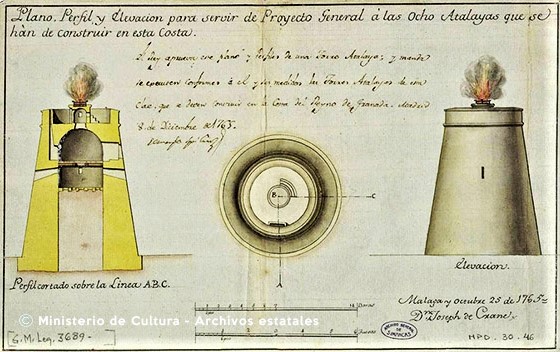 Plano, Perfil y Elevacion para servir de Proyecto General à las Ocho Atalayas que se
hàn de Construir en esta Costa.
El Rey aprueva este plano y Perfiles de una Torre Atalaya; y manda
se executen conformes à el y sus medidas las Torres Atalayas de esta
clase, que se deven construir en la Costa del Reyno de Granada. Madrid
8 de Diciembre de 1765.
B
C
A
Perfil cortado sobre la Linea A.B.C.
Elevacion.
Malaga y octubre 25 de 1765
Dn. Joseph de Crane
© Ministerio de Cultura - Archivos estatales
G.M. Leg. 3689-
ARCHIVO GENERAL
SIMANCAS
MPD. 30. 46